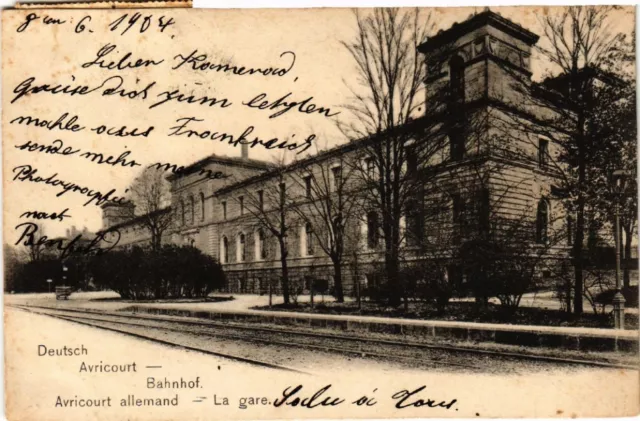 6. 1904.
Lieber Kamerad,
grüse dich zum letzten
mahle aus Frankreich
sende mihr meine
Photographie
nach
Benfeld
Deutsch
Avricourt —
Bahnhof.
Avricourt allemand — La gare.
Salu à tous.